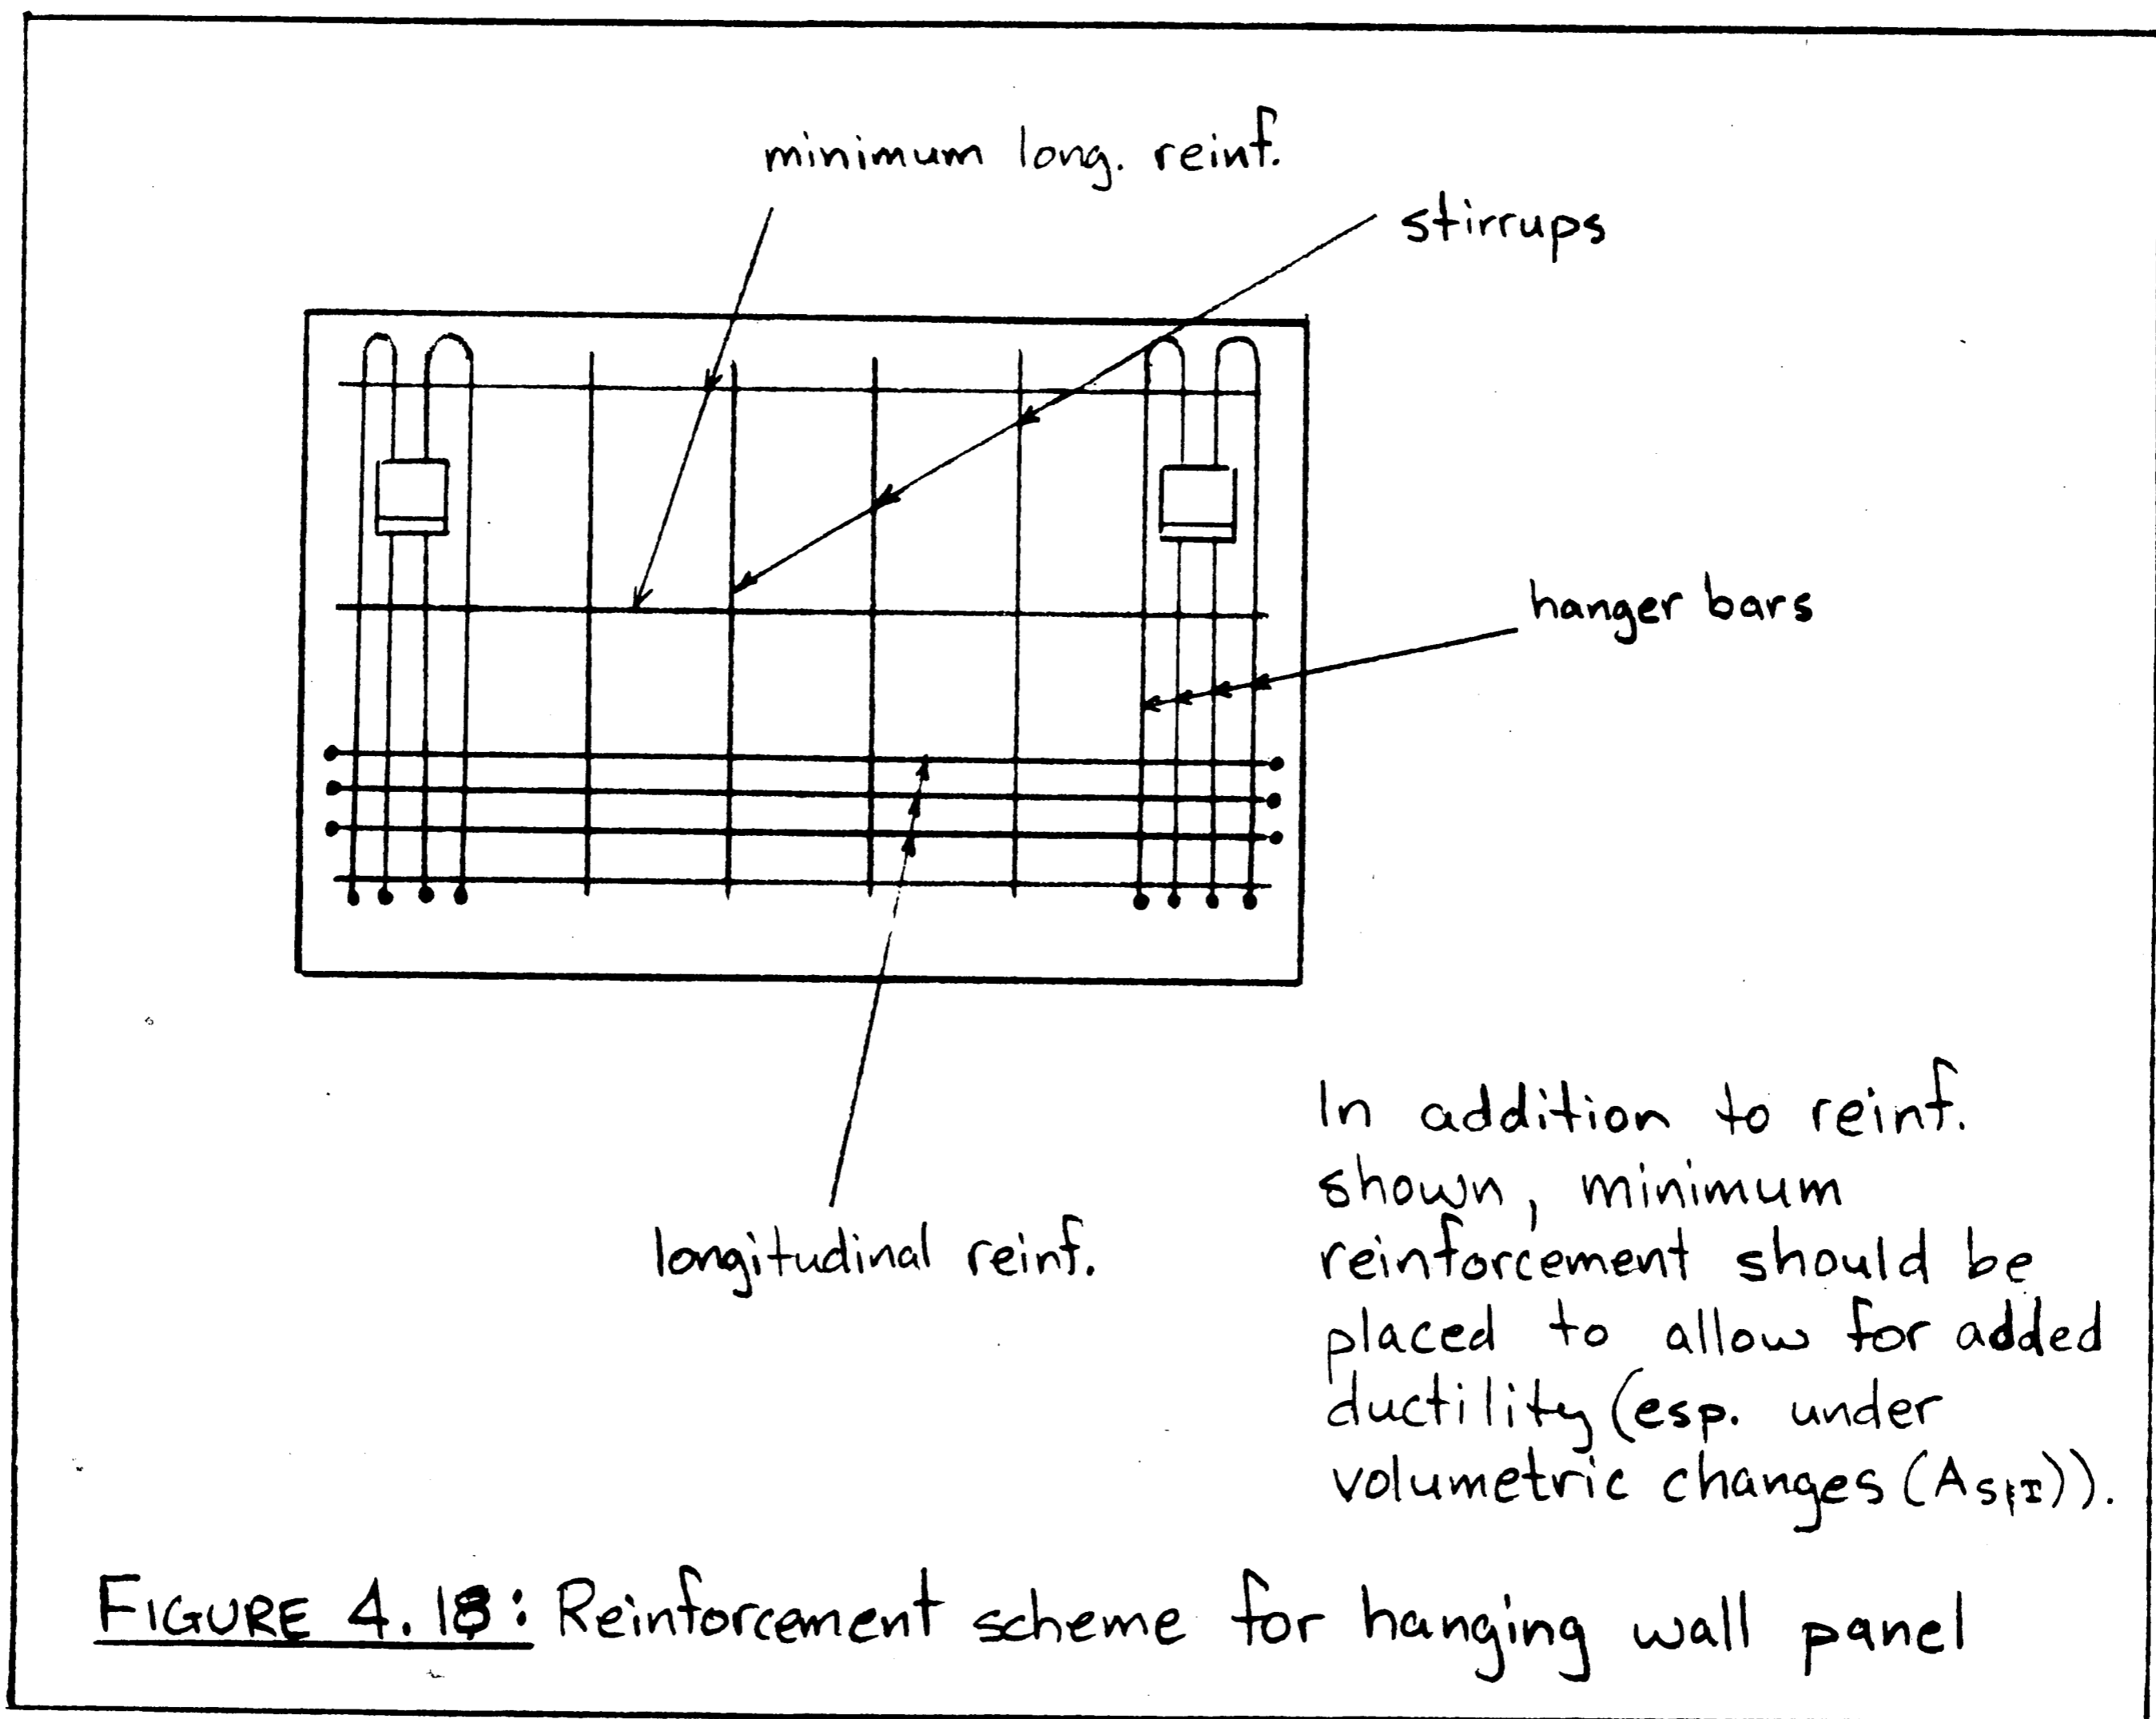 minimum long. reinf.
stirrups
hanger bars
longitudinal reinf.
In addition to reinf.
shown, minimum
reinforcement should be
placed to allow for added
ductility (esp. under
volumetric changes (A )).
FIGURE 4.18: Reinforcement scheme for hanging wall panel